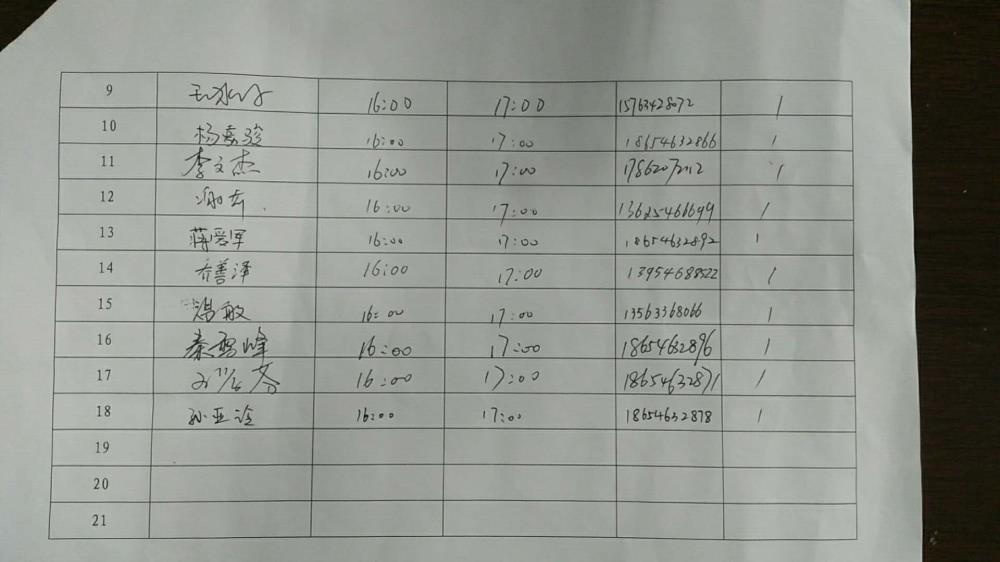 9 16:00 17:00 15763428072 1
10 杨嘉骏 16:00 17:00 18654632866 1
11 李文杰 16:00 17:00 17862072112 1
12 16:00 17:00 13625466699 1
13 蒋爱军 16:00 17:00 18654632892 1
14 乔善泽 16:00 17:00 13954688522 1
15 敏 16:00 17:00 13563368066 1
16 秦雪峰 16:00 17:00 18654632896 1
17 16:00 17:00 18654632871 1
18 孙亚 16:00 17:00 18654632878 1
19
20
21